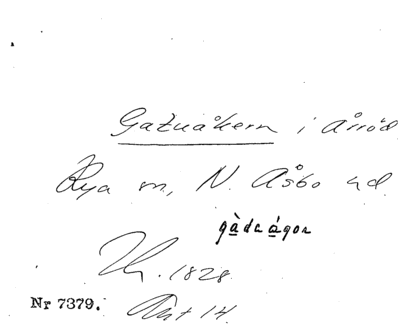 Gatuåkern i Årröd
Rya sn, N. Åsbo hd.
gàda ágon
1828
Nr 7379. Akt 14